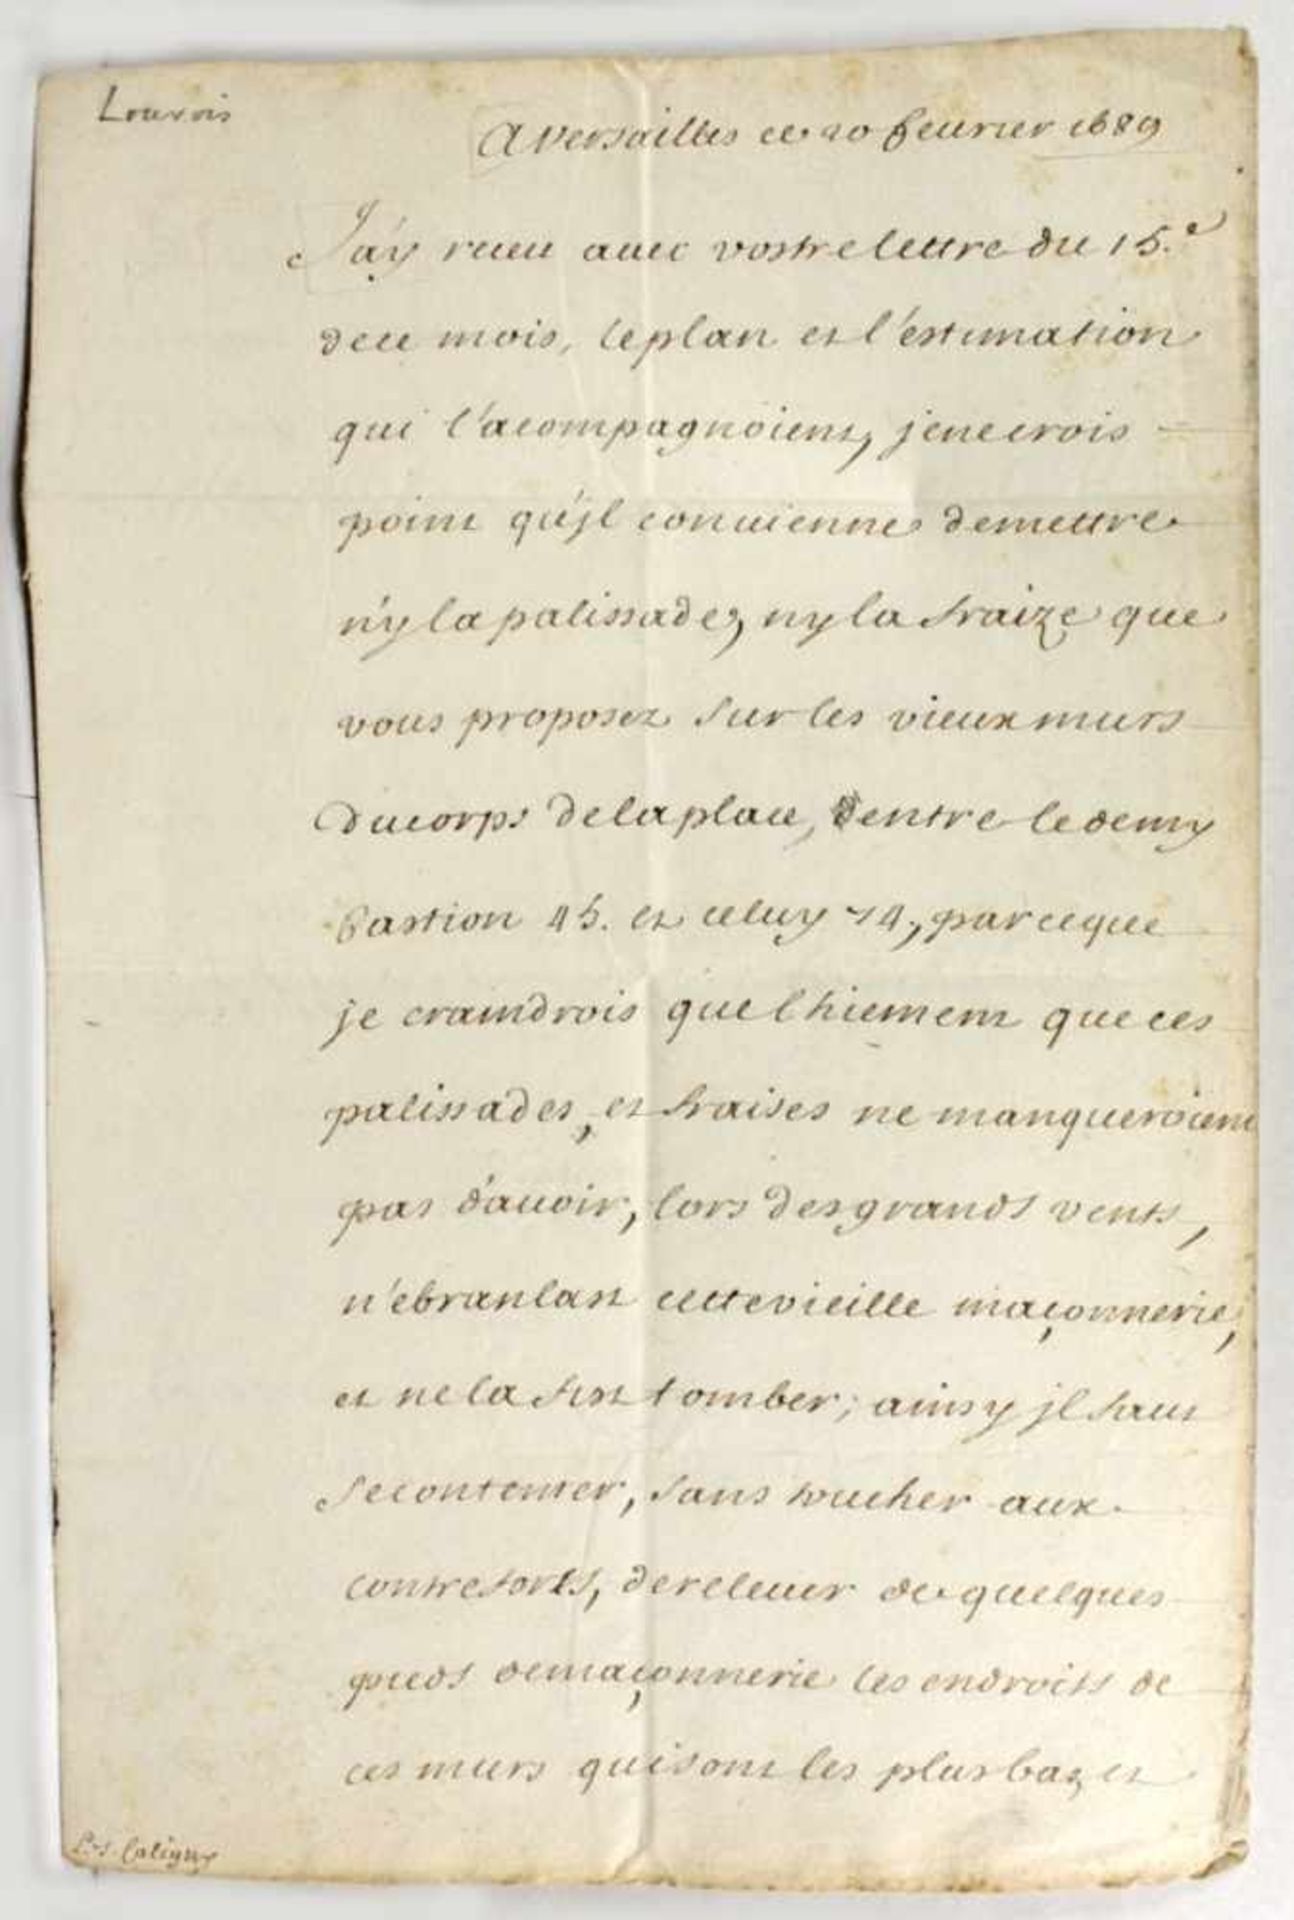 Louvois
A Versailles ce 20 feurier 1689
J'ay receu auec vostre lettre du 15.e
de ce mois, le plan et l'estimation
qui l'acompagnoient, je ne crois
point qu'jl conuienne de mettre
n'y la palissade, ny la fraize que
vous proposez sur les vieux murs
du corps de la place, d'entre le demy
bastion 45. et celuy 74, parce que
je craindrois que l'hiement que ces
palissades, et fraises ne manqueroient
pas d'auoir, lors des grands vents,
n'ebranlast cette vieille maçonnerie,
et ne la fist tomber; ainsy jl faut
se contenter, sans toucher aux
contreforts, de releuer de quelques
pieds de maçonnerie les endroits de
ces murs qui sont les plus baz et
Caligny